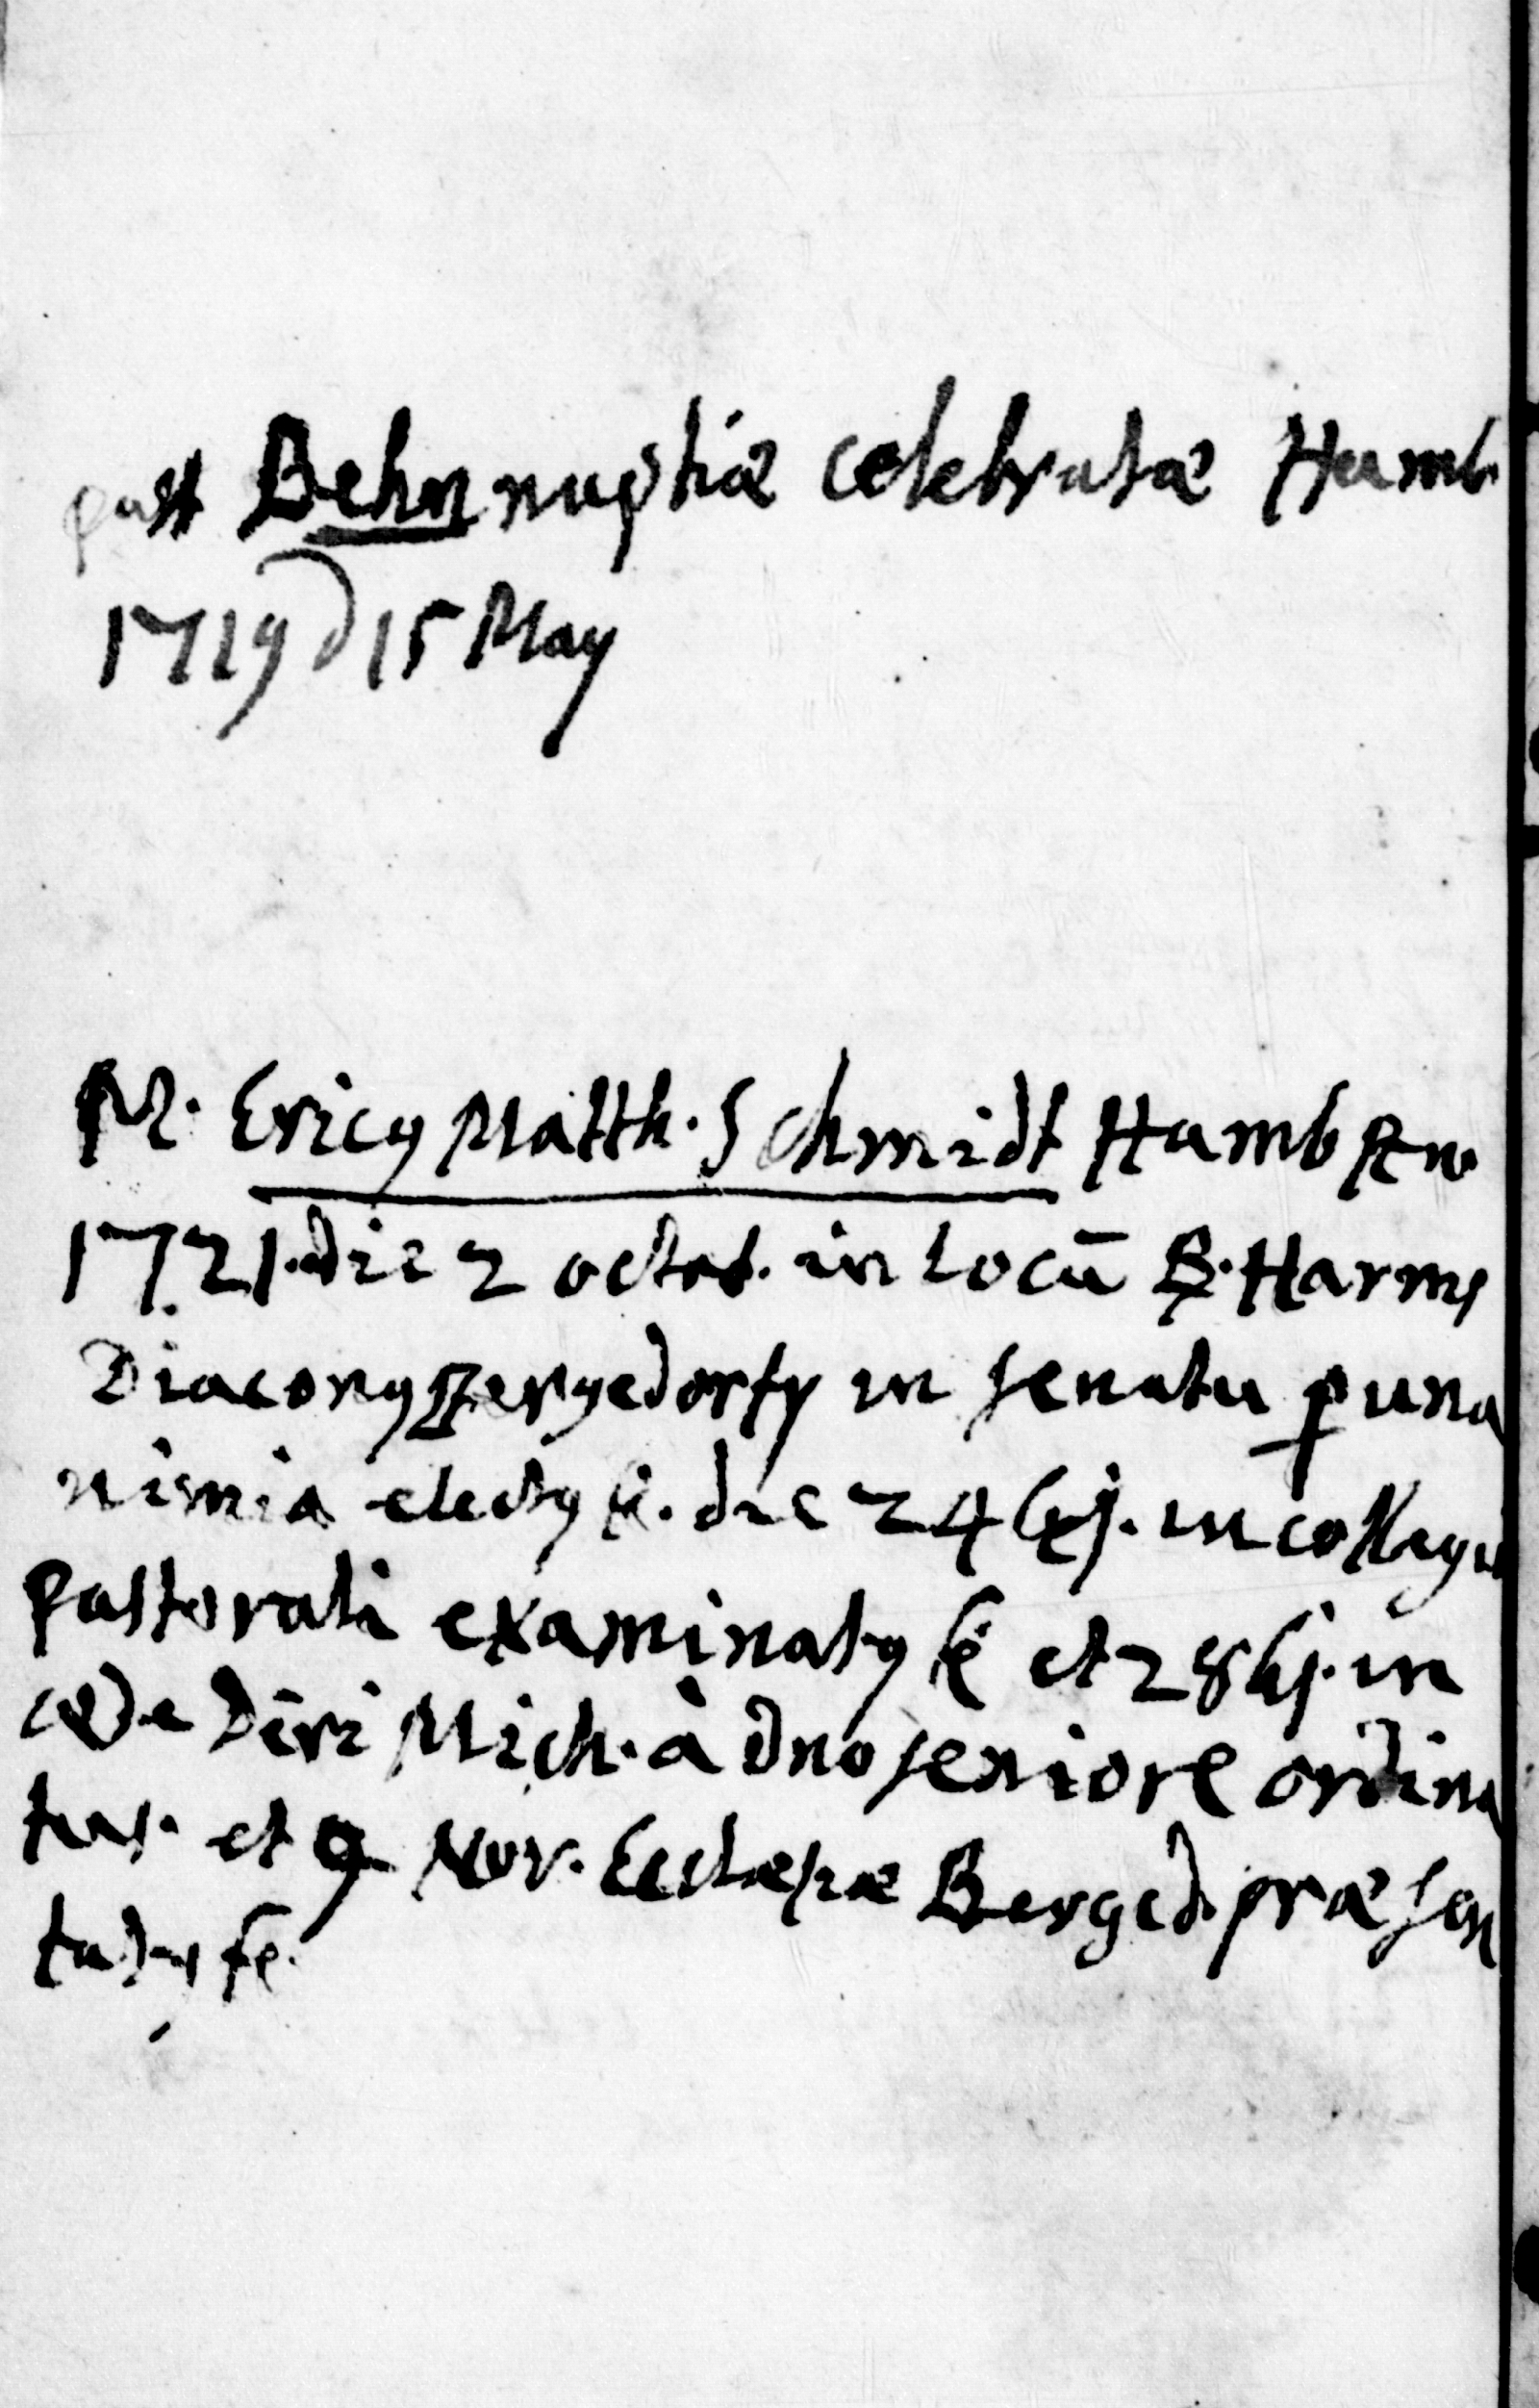 past Behn nuptiæ celebratæ Hamb.
1719 d 15 May
M. Ericy Matth. Schmidt Hamb
1721. die 2 octob. in Locū B. Harms
Diacony Bergedorfy in senatu p una
nimia electy e. die 24 ej. in collegio
pastorali examinaty e et 28 ej. in
æde Divi Mich. à dno seniore ordina
tus. et 9 Nov. Ecclesiæ Berged. præsen
tatus e.